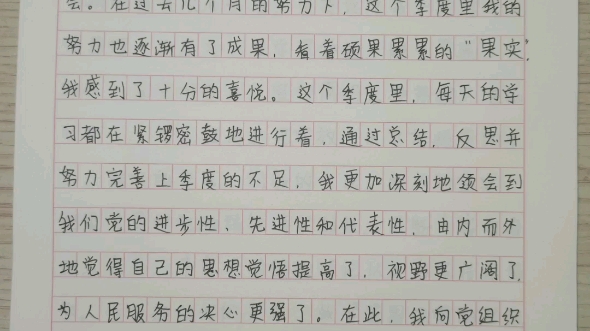 会。在过去几个月的努力下，这个季度里我的
努力也逐渐有了成果，看着硕果累累的“果实”，
我感到了十分的喜悦。这个季度里，每天的学
习都在紧锣密鼓地进行着，通过总结，反思并
努力完善上季度的不足，我更加深刻地领会到
我们党的进步性、先进性和代表性，由内而外
地觉得自己的思想觉悟提高了，视野更广阔了，
为人民服务的决心更强了。在此，我向党组织